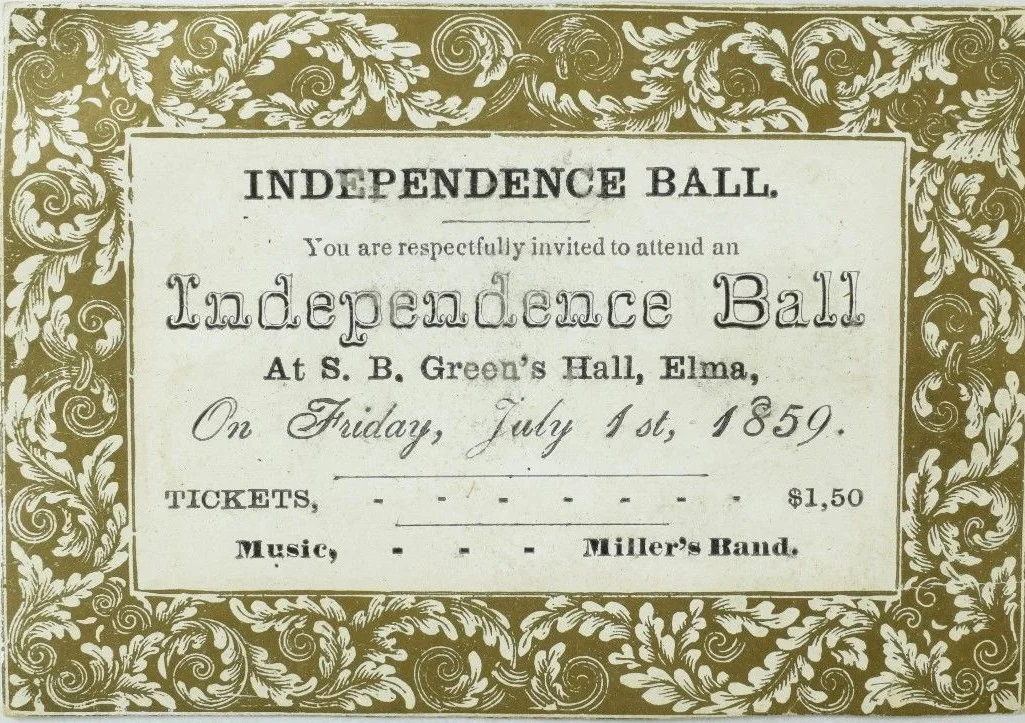 INDEPENDENCE BALL.
You are respectfully invited to attend an
Independence Ball
At S. B. Green's Hall, Elma,
On Friday, July 1st, 1859.
TICKETS, - - - - - - - $1,50
Music, - - - Miller's Band.